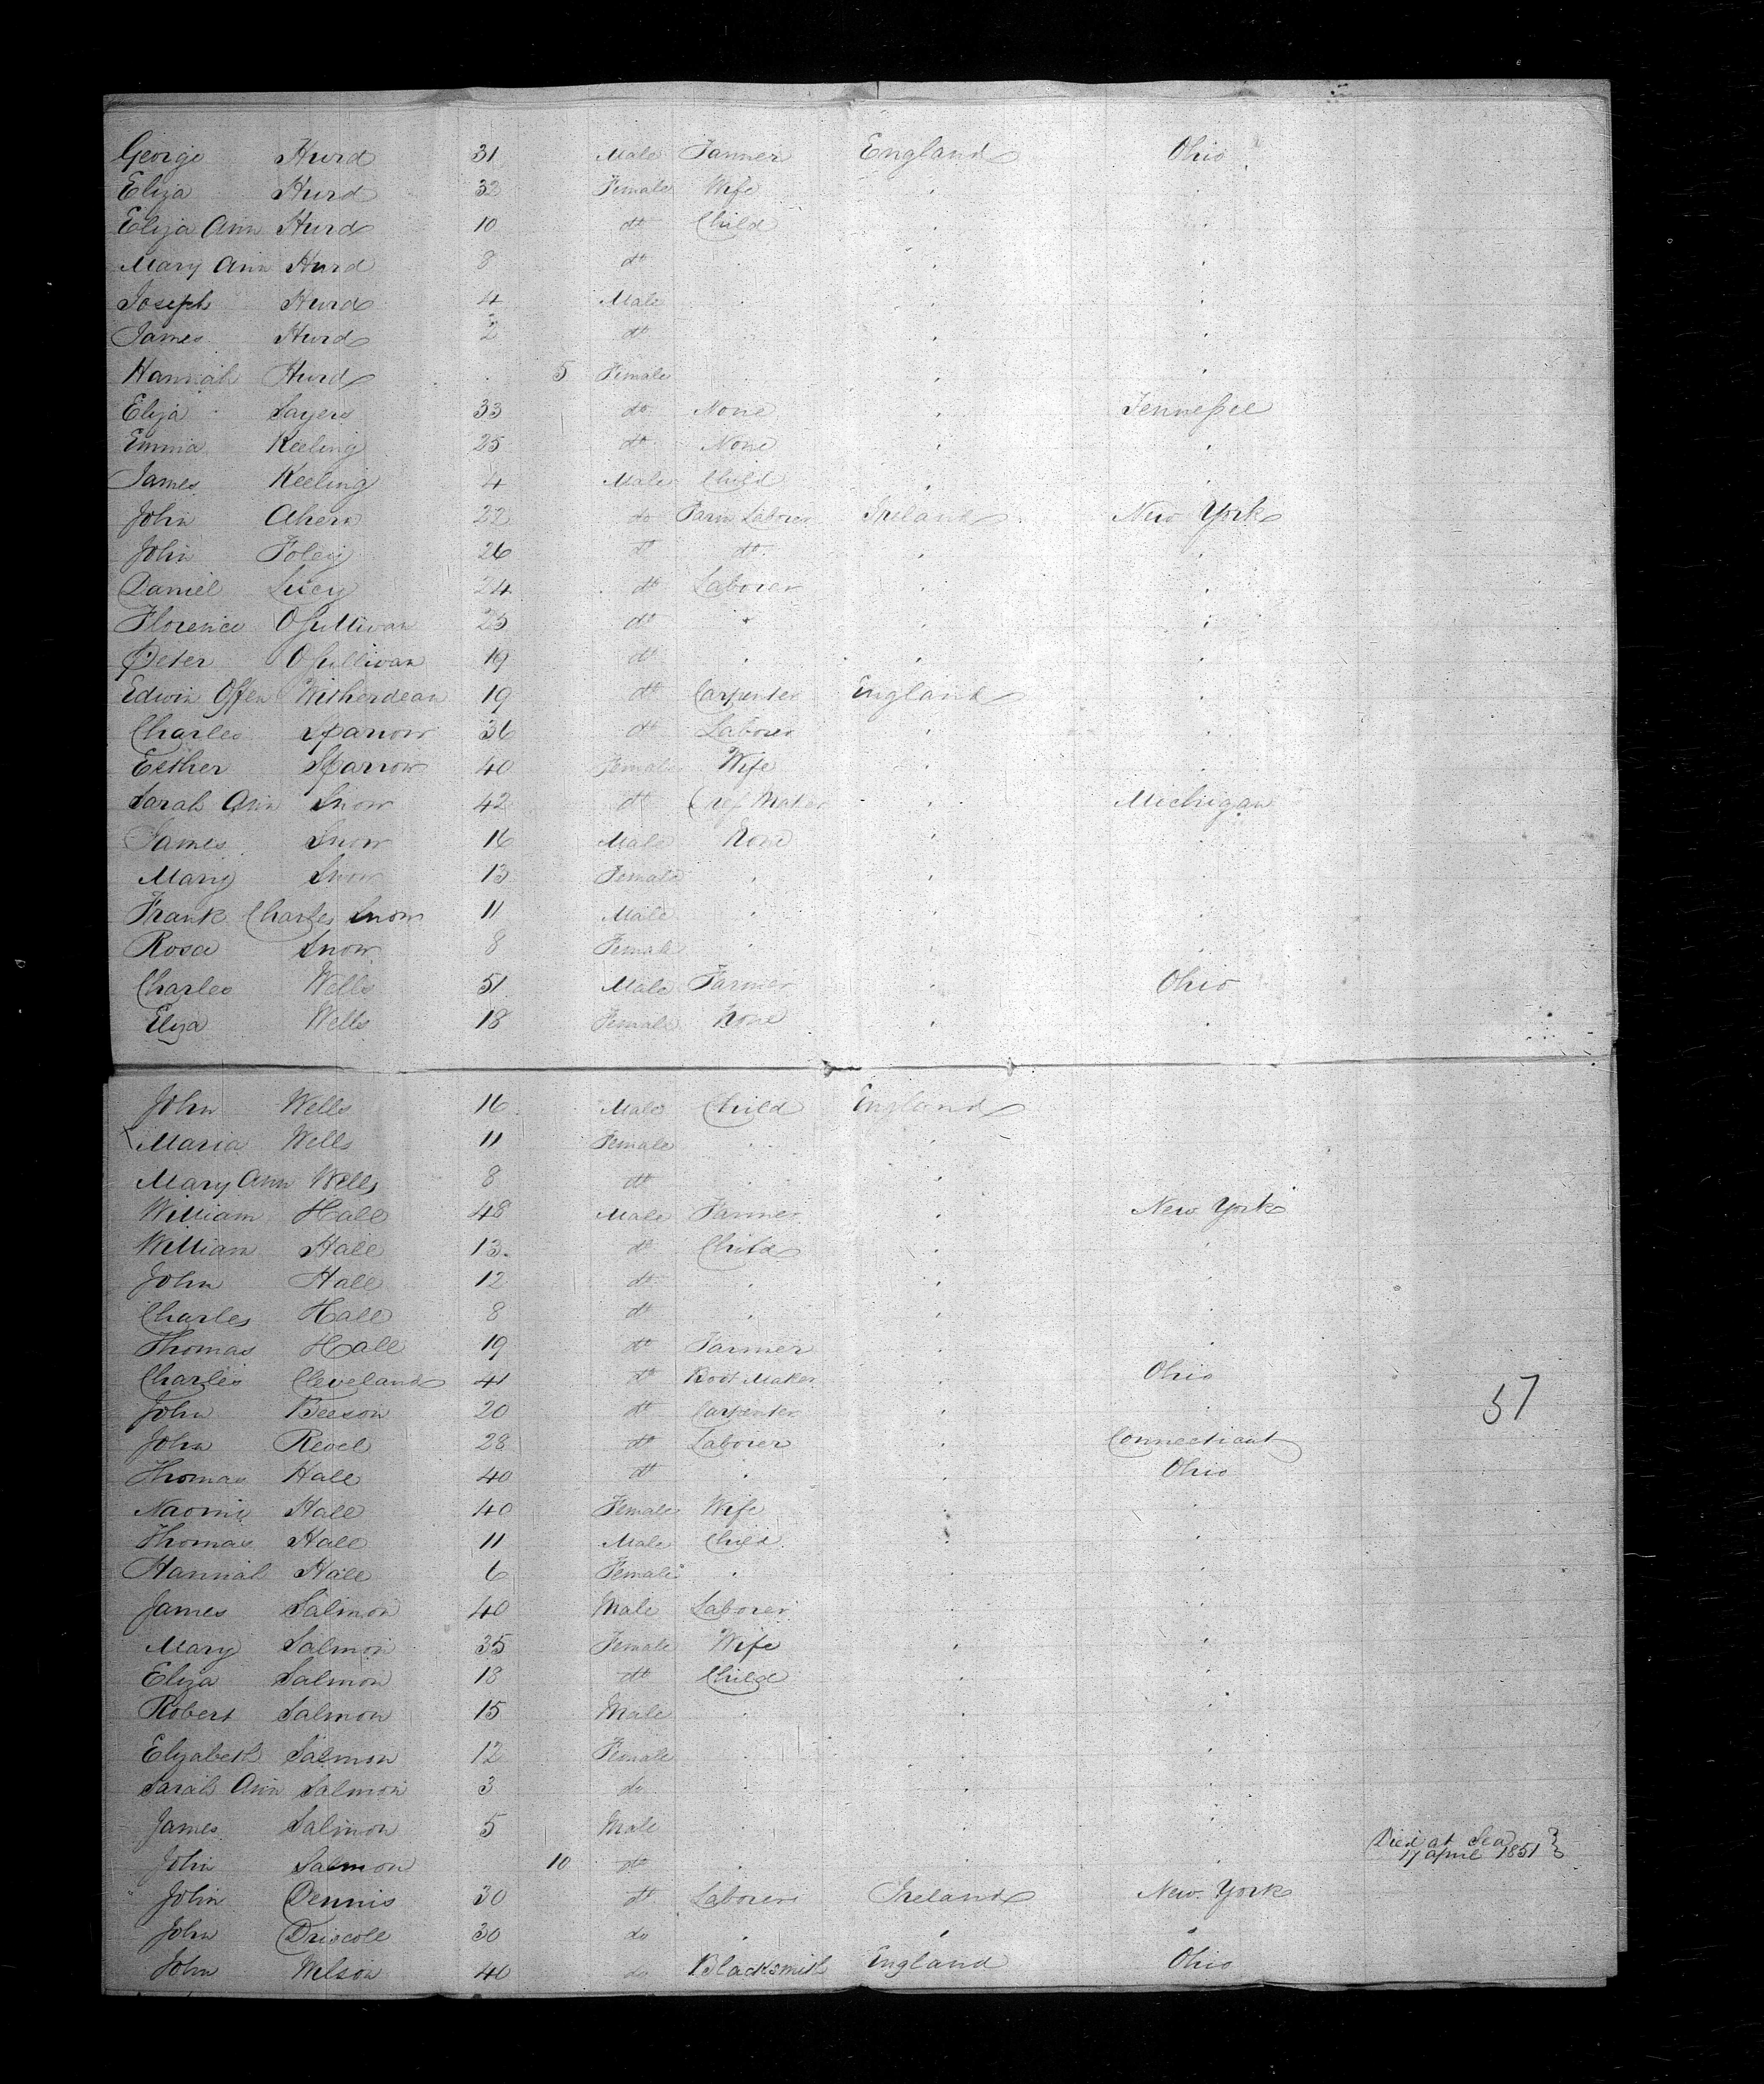 George Hurd 31 Male Farmer England Ohio
Eliza Hurd 32 Female Wife " "
Eliza Ann Hurd 10 do Child " "
Mary Ann Hurd 8 do " " "
Joseph Hurd 4 Male " " "
James Hurd 2 do " " "
Hannah Hurd 5 Female " " "
Eliza Sayers 33 do None " Tenneſsee
Emma Keeling 25 do None " "
James Keeling 4 Male Child " "
John Ahern 22 do Farm Laborer Ireland New York
John Foley 26 do do " "
Daniel Lucy 24 do Laborer " "
Florence OSullivan 25 do " " "
Peter OSullivan 19 do " " "
Edwin Offen Witherdean 19 do Carpenter England "
Charles Sparrow 36 do Laborer " "
Esther Sparrow 40 Female Wife " "
Sarah Ann Snow 42 do Maker " Michigan
James Snow 16 Male None " "
Mary Snow 13 Female " " "
Frank Charles Snow 11 Male " " "
Rosa Snow 8 Female " " "
Charles Wells 51 Male Farmer " Ohio
Eliza Wells 18 Female None " "
John Wells 16 Male Child England
Maria Wells 11 Female " "
Mary Ann Wells 8 do " "
William Hall 48 Male Farmer " New York
William Hall 13 do Child " "
John Hall 12 do " " "
Charles Hall 8 do " " "
Thomas Hall 19 do Farmer " "
Charles Cleveland 41 do Boot Maker " Ohio
57
John Beeson 20 do Carpenter " "
John Revel 28 do Laborer " Connecticut
Thomas Hall 40 do " " Ohio
Naomi Hall 40 Female Wife " "
Thomas Hall 11 Male Child " "
Hannah Hall 6 Female " " "
James Salmon 40 Male Laborer " "
Mary Salmon 35 Female Wife " "
Eliza Salmon 18 do Child " "
Robert Salmon 15 Male " " "
Elizabeth Salmon 12 Female " " "
Sarah Ann Salmon 3 do " " "
James Salmon 5 Male " " "
John Salmon 10 do " " " Died at Sea
17 april 1851
John Dennis 30 do Laborer Ireland New York
John Driscoll 30 do " " "
John Wilson 40 do Blacksmith England Ohio